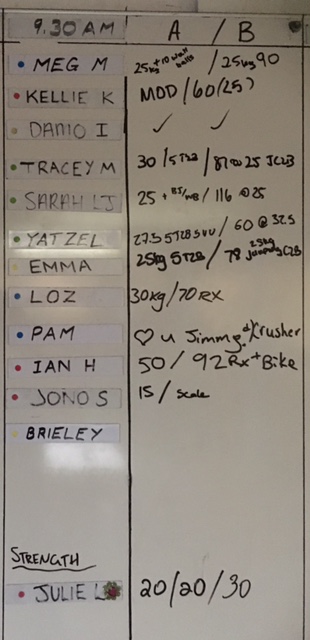 9.30 AM A / B
MEG M 25kg +10 wall balls / 25kg 90
KELLIE K MOD / 60 (25)
DAMO I ✓ ✓
TRACEY M 30 / 5T2B / 81 @ 25 JC2B
SARAH LJ 25 + / 116 @ 25
YATZEL 27.5 5T2B / 60 @ 32.5
EMMA 25kg 5T2B / 78 25kg C2B
LOZ 30kg / 70 RX
PAM ♡ u Jimmy Krusher
IAN H 50 / 92 Rx + Bike
JONO S 15 / Scale
BRIELEY
STRENGTH
JULIE L 20/20/30